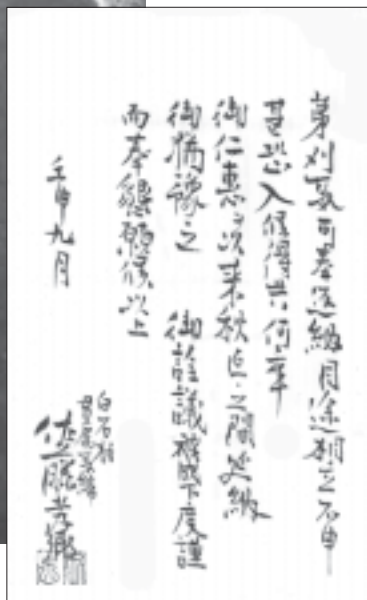 可奉返納目途相立不申
甚恐入候得共何卒
御仁恵ヲ以来秋迄之間延納
御猶豫之 御詮議被成下度謹
而奉懇願候以上
壬申九月
白石
佐藤